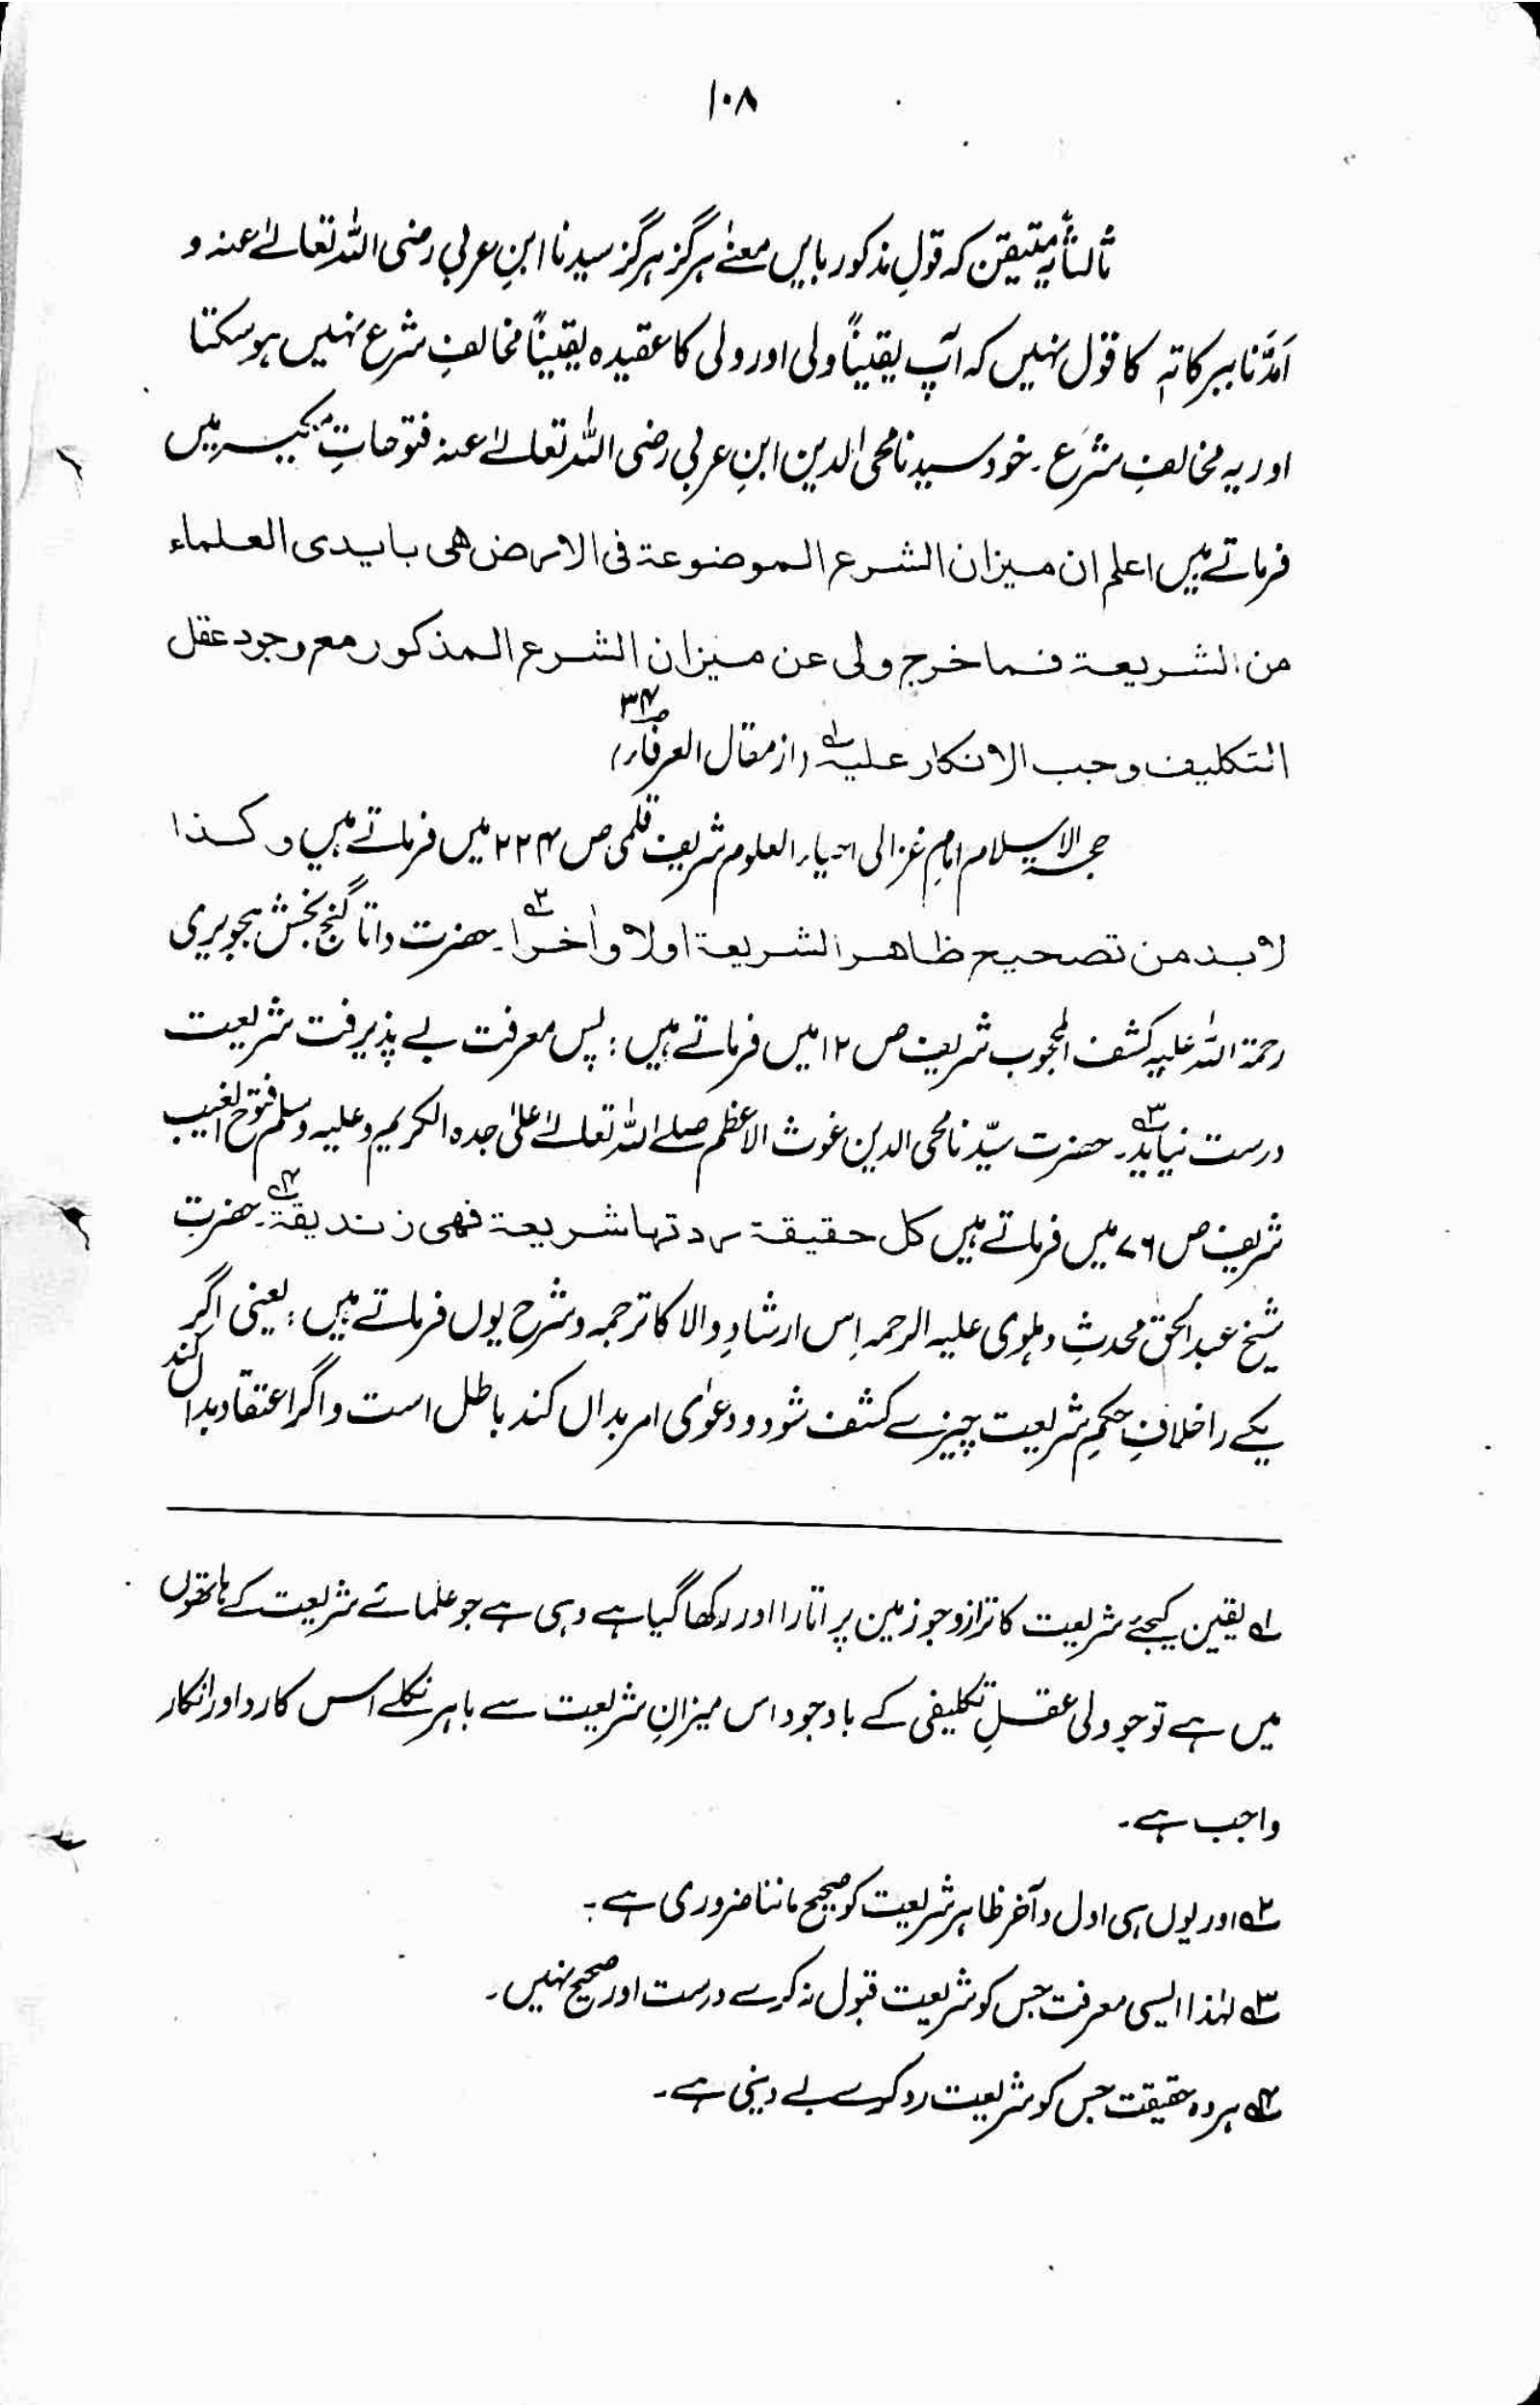 ۱۰۸
ثالثاً یہ متیقن کہ قولِ مذکور بایں معنےٰ ہرگز ہرگز سیدنا ابنِ عربی رضی اللہ تعالےٰ عنہ و
اَمَدَّنا ببرکاتہٖ کا قول نہیں کہ آپ یقیناً ولی اور ولی کا عقیدہ یقیناً مخالفِ شرع نہیں ہو سکتا
اور یہ مخالفِ شرع ۔ خود سیدنا محی الدین ابنِ عربی رضی اللہ تعالےٰ عنہ فتوحاتِ مکیہ میں
فرماتے ہیں اعلم ان میزان الشرع الموضوعۃ فی الارض ھی بایدی العلماء
من الشریعۃ فما خرج ولی عن میزان الشرع المذکور مع وجود عقل
التکلیف وجب الانکار علیہ ۱؎ (از مقال العرفاء) ص۳۴
حجۃ الاسلام امام غزالی احیاء العلوم شریف قلمی ص ۲۲۴ میں فرماتے ہیں و کذا
لابد من تصحیح ظاھر الشریعۃ اولا واٰخرا ۲؎ ۔ حضرت داتا گنج بخش ہجویری
رحمۃ اللہ علیہ کشف المحجوب شریف ص ۱۲ میں فرماتے ہیں : پس معرفت بے پذیرفت شریعت
درست نیاید ۳؎ ۔ حضرت سیّدنا محی الدین غوث الاعظم صلے اللہ تعالےٰ علیٰ جدہ الکریم وعلیہ وسلم فتوح الغیب
شریف ص ۷۶ میں فرماتے ہیں کل حقیقۃ ردتھا شریعۃ فھی زندیقۃ ۴؎ ۔ حضرت
شیخ عبدالحق محدثِ دہلوی علیہ الرحمہ اِس ارشادِ والا کا ترجمہ و شرح یوں فرماتے ہیں : یعنی اگر
یکے را خلافِ حکمِ شریعت چیزے کشف شود و دعوٰی امر بداں کند باطل است و اگر اعتقاد بداں کند
۱؎ یقین کیجئے شریعت کا ترازو جو زمین پر اتارا اور رکھا گیا ہے وہی ہے جو علمائے شریعت کے ہاتھوں
میں ہے تو جو ولی عقلِ تکلیفی کے باوجود اس میزانِ شریعت سے باہر نکلے اس کا رد اور انکار
واجب ہے ۔
۲؎ اور یوں ہی اول و آخر ظاہر شریعت کو صحیح ماننا ضروری ہے ۔
۳؎ لہٰذا ایسی معرفت جس کو شریعت قبول نہ کرے درست اور صحیح نہیں ۔
۴؎ ہر وہ حقیقت جس کو شریعت رد کرے بے دینی ہے ۔